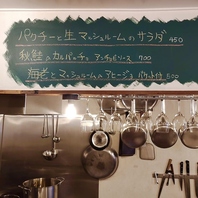 パクチーと生マッシュルームのサラダ 450
秋鮭のカルパッチョ アンチョビソース 700
海老とマッシュルームのアヒージョ バケット付 800